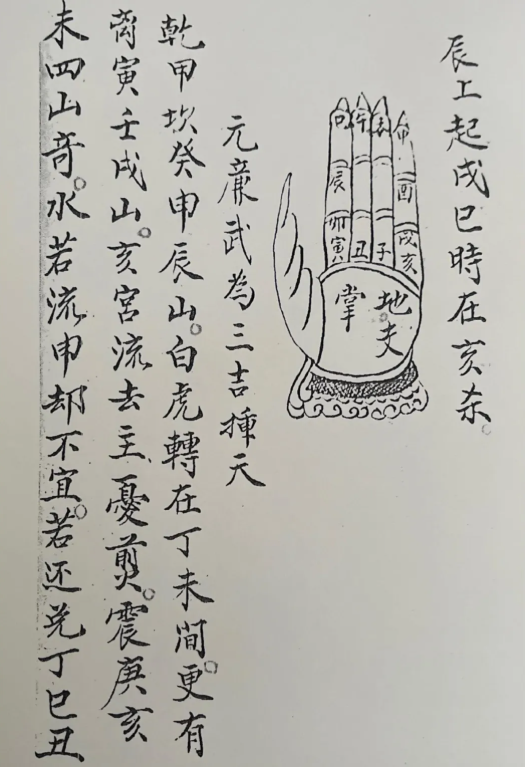 辰上起戌巳時在亥杀。
午
申
辰
酉
卯寅
丑
子
戌亥
地夫
掌
元廉武為三吉揷天
乾甲坎癸申辰山。白虎轉在丁未澗。更有
离寅壬戌山。亥宮流去主憂煎。震庚亥
未四山奇。水若流申却不宜。若还兑丁巳丑